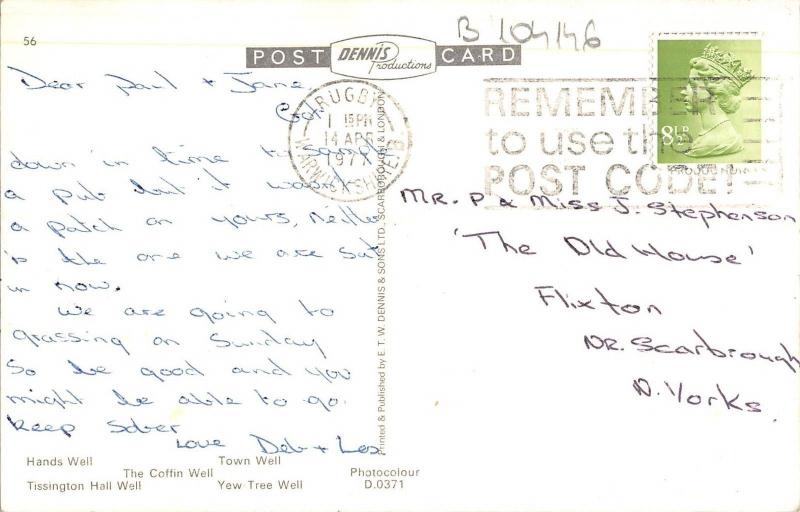 56
B 104146
POST DENNIS Productions CARD
Dear Paul + Jane
Got
down in time to sample
a pub but it wasn't
a patch on yours, neither
is the one we are sat
in now.
We are going to
grassing on Sunday
So be good and you
might be able to go.
Keep Sober
Love Deb + Les
RUGBY
15 PM
14 APR
197
WARWICKSHIRE B
REMEMBER
to use the
POST CODE!
8½P
Mr. P & Miss J. Stephenson
'The Old House'
Flixton
Nr. Scarbrough
N. Yorks.
Printed & Published by E. T. W. DENNIS & SONS LTD., SCARBOROUGH & LONDON
Hands Well Town Well
The Coffin Well Photocolour
Tissington Hall Well Yew Tree Well D.0371